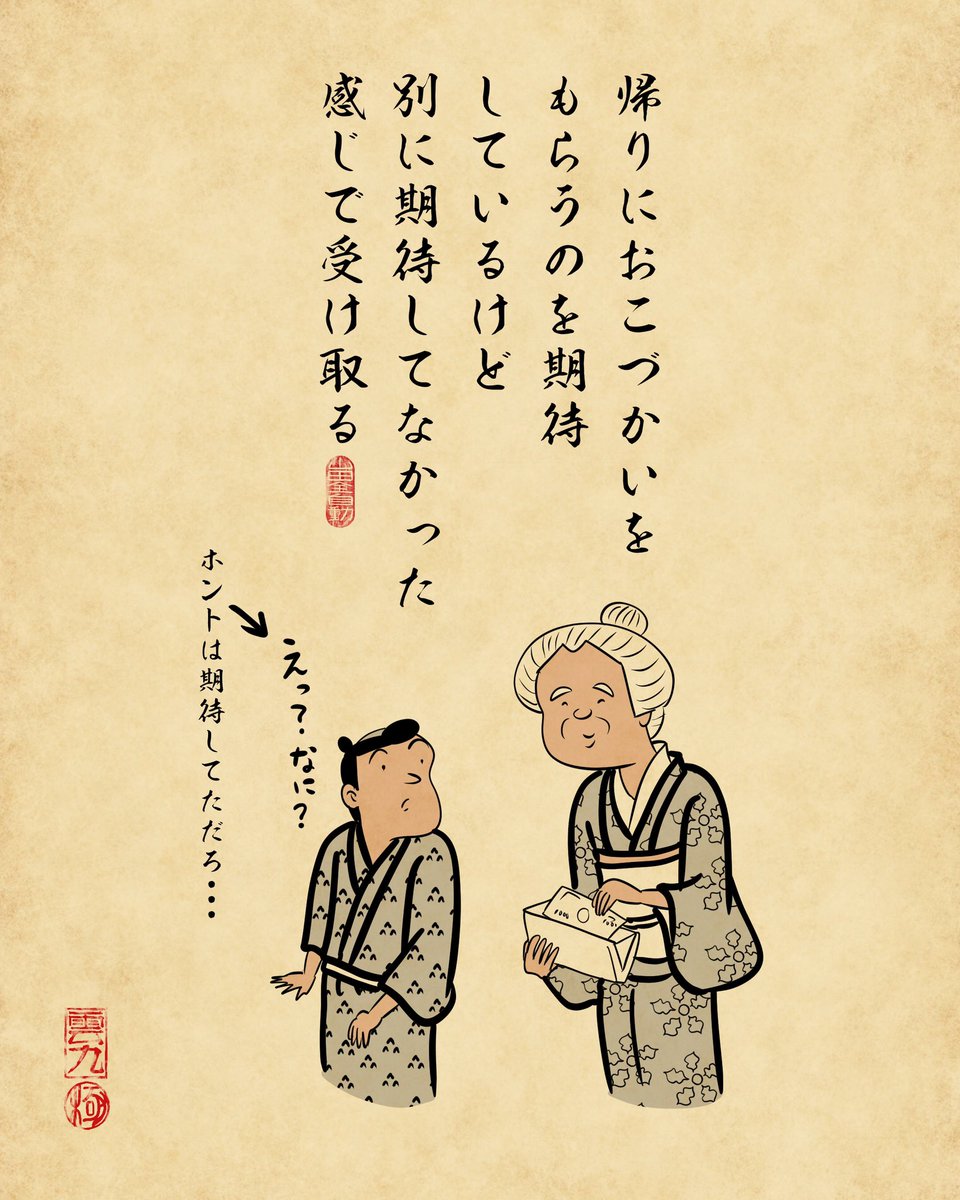 帰りにおこづかいを
もらうのを期待
しているけど
別に期待してなかった
感じで受け取る
えっ？なに？
ホントは期待してただろ・・・
1000
1000